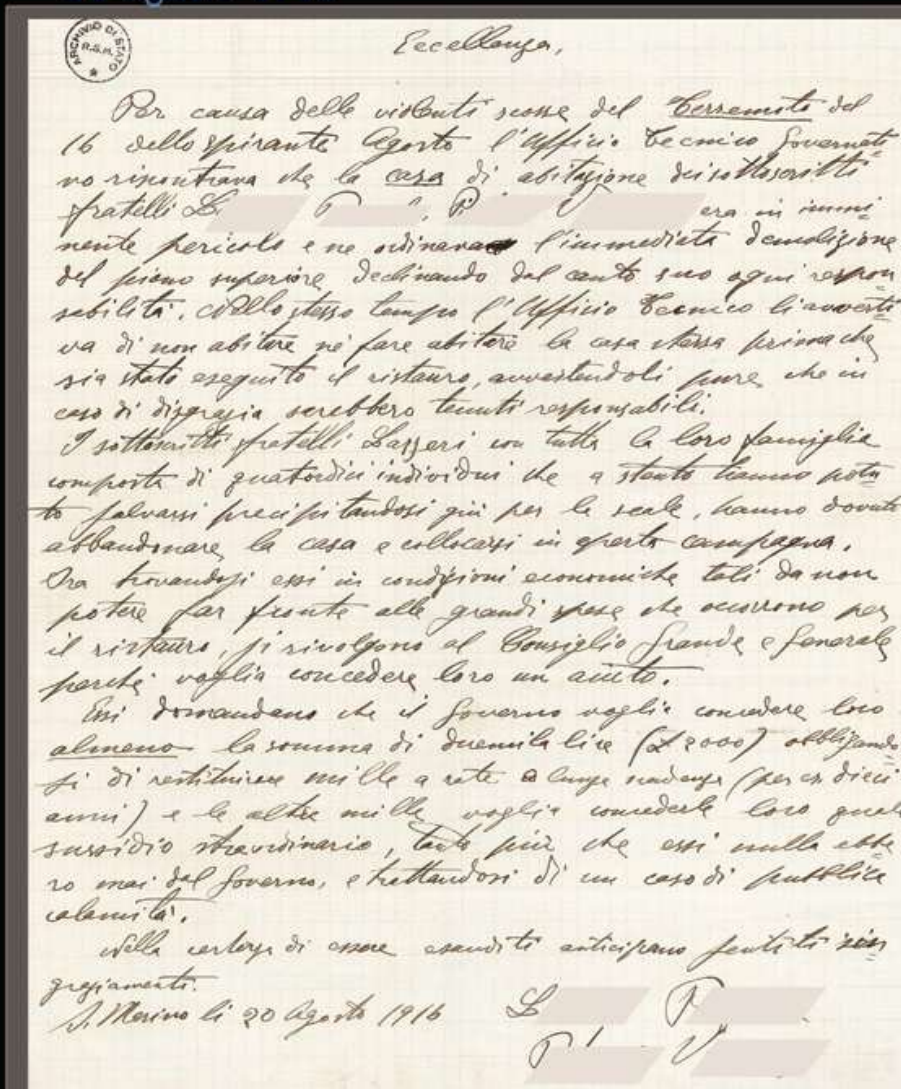 ARCHIVIO DI STATO
R.S.M.
Eccellenza,
Per causa delle violenti scosse del Terremoto del
16 dello spirante Agosto l'Ufficio Tecnico Governati
vo riscontrava che la casa di abitazione dei sottoscritti
fratelli L T P V era in immi
nente pericolo e ne ordinava l'immediata demolizione
del piano superiore declinando dal canto suo ogni respon
sabilità. Nello stesso tempo l'Ufficio Tecnico li avverti
va di non abitare nè fare abitare la casa stessa prima che
sia stato eseguito il ristauro, avvertendoli pure che in
caso di disgrazia serebbero tenuti responsabili.
I sottoscritti fratelli Lazzeri con tutta la loro famiglia
composta di quatordici individui che a stento hanno potu
to salvarsi precipitandosi giù per le scale, hanno dovuto
abbandonare la casa e collocarsi in aperta campagna.
Ora trovandosi essi in condizioni economiche tali da non
potere far fronte alle grandi spese che occorrono per
il ristauro, si rivolgono al Consiglio Grande e Generale
perchè voglia concedere loro un aiuto.
Essi domandano che il Governo voglia concedere loro
almeno la somma di duemila lire (£2000) obbligando
si di restituire mille a rate a lunga scadenza (per es dieci
anni) e le altre mille voglia concederle loro quale
sussidio straordinario, tanto più che essi nulla ebbe
ro mai dal Governo, e trattandosi di un caso di pubblica
calamità.
Nella certezza di essere esauditi anticipano sentiti rin
graziamenti.
S. Marino li 20 Agosto 1916 L T
T V